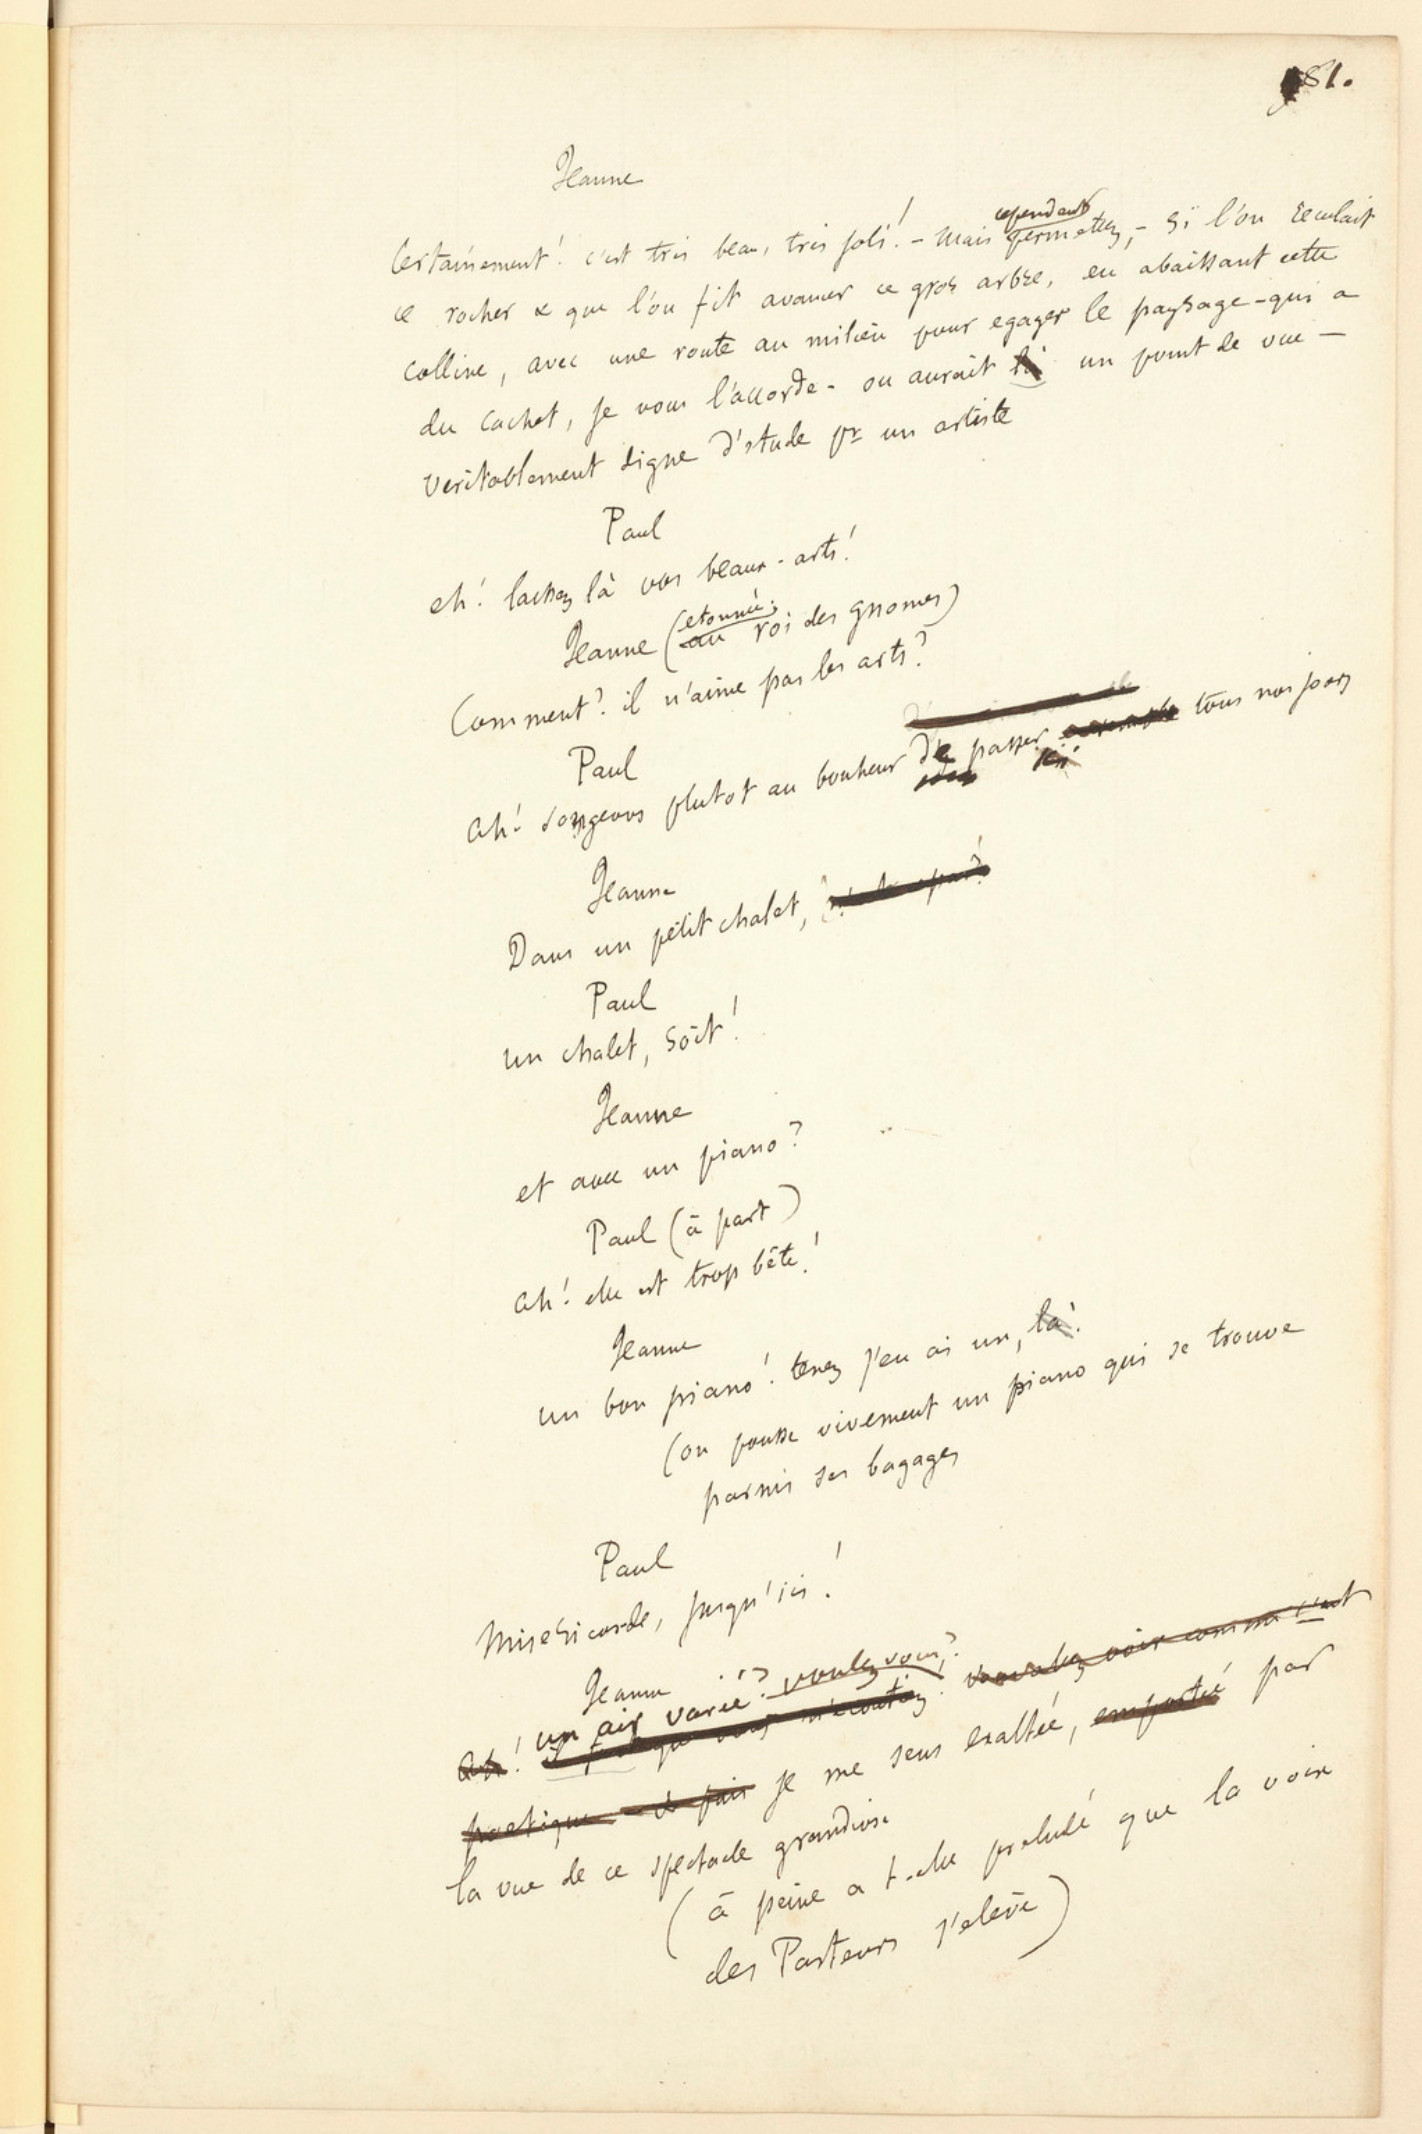 81.
Jeanne
Certainement! c'est tres beau, tres joli! - Mais permettez, - Si l'on reculait
cependant
ce rocher & que l'on fit avancer ce gros arbre, en abaissant cette
colline, avec une route au milieu pour egayer le paysage - qui a
du cachet, je vous l'accorde - on aurait là un point de vue -
veritablement digne d'etude pr un artiste
Paul
eh! laissez là vos beaux-arts!
etonnée;
Jeanne (au roi des gnomes)
Comment? il n'aime pas les arts?
Paul
Ah! songeons plutot au bonheur de passer ensemble tous nos jours
ici
Jeanne
Dans un petit chalet, n'est ce pas?
Paul
un chalet, soit!
Jeanne
et avec un piano?
Paul (à part)
Ah! elle est trop bête!
Jeanne
un bon piano! tenez j'en ai un, là!
(on pousse vivement un piano qui se trouve
parmi ses bagages
Paul
Misericorde, jusqu'ici!
Jeanne
un air varié? voulez vous?
Ah! que vous m'écoutiez! vous allez voir comme c'est
poetique - je me sens exaltée, emportée par
la vue de ce spectacle grandiose
(à peine a t-elle preludé que la voix
des Pasteurs s'elève)